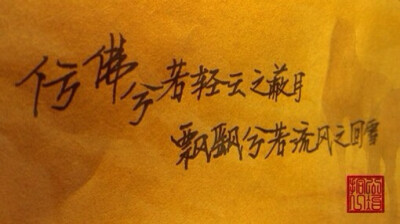 仿佛兮若轻云之蔽月
飘飖兮若流风之回雪